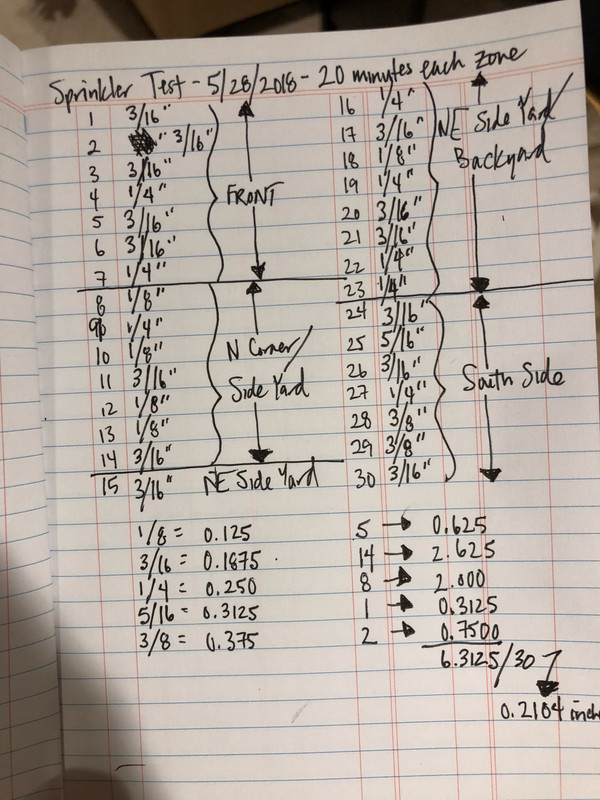 Sprinkler Test - 5/28/2018 - 20 minutes each zone
1 3/16"
2 " 3/16"
3 3/16"
4 1/4"
5 3/16"
6 3/16"
7 1/4"
FRONT
8 1/8"
9 1/4"
10 1/8"
11 3/16"
12 1/8"
13 1/8"
14 3/16"
N Corner/
Side Yard
15 3/16" NE Side Yard
16 1/4"
17 3/16"
18 1/8"
19 1/4"
20 3/16"
21 3/16"
22 1/4"
23 1/4"
NE Side Yard/
Backyard
24 3/16"
25 5/16"
26 3/16"
27 1/4"
28 3/8"
29 3/8"
30 3/16"
South Side
1/8 = 0.125
3/16 = 0.1875
1/4 = 0.250
5/16 = 0.3125
3/8 = 0.375
5 → 0.625
14 → 2.625
8 → 2.000
1 → 0.3125
2 → 0.7500
6.3125/30
0.2104 inche